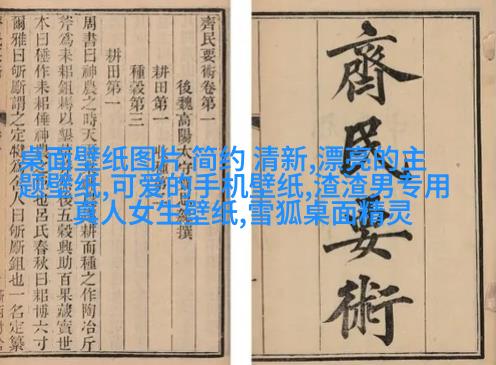 桌面壁纸图片 简约 清新,漂亮的主
题壁纸,可爱的手机壁纸,渣渣男专用
真人女生壁纸,雪狐桌面精灵
齊民要術
齊民要術卷第一
後魏高陽太撰
耕田第一
種穀第三
耕田第一
周書曰神農之時天耕而種之作陶冶斤
斧為耒耜鋤耨以墾後五穀興助百果藏實世
本曰倕作耒耜倕神農也呂氏春秋曰耜博六寸
爾雅曰斪斸謂之定犍為人曰斪斸鉏也一名定纂